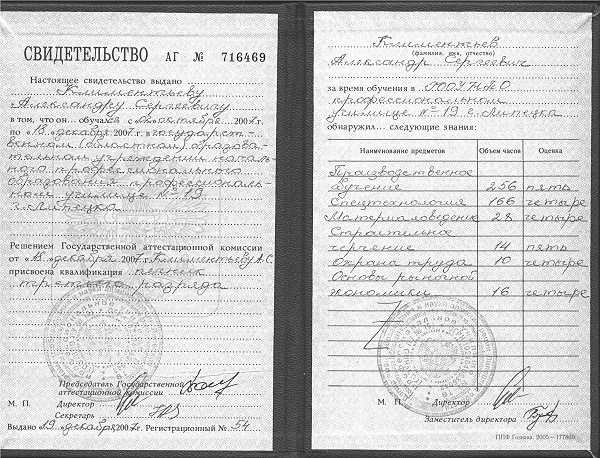 СВИДЕТЕЛЬСТВО АГ № 716469
Настоящее свидетельство выдано
Климентьеву
Александру Сергеевичу
в том, что он обучался с „02“ октября 2007г.
по „18“ декабря 2007г. в государст-
венном (областном) образова-
тельном учреждении началь-
ного профессионального
образования профессиональ-
ном училище № 19
г. Липецка
Решением Государственной аттестационной комиссии
от „18“ декабря 2007г. Климентьеву А.С.
присвоена квалификация
третьего разряда
Председатель Государственной
аттестационной комиссии
М. П. Директор
Секретарь
Выдано „19“ декабря 2007г. Регистрационный № 54
Климентьев
(фамилия, имя, отчество)
Александр Сергеевич
за время обучения в ГООУ НПО
профессиональном
училище № 19 г. Липецка
обнаружил следующие знания:
Наименование предметов Объем часов Оценка
Производственное
обучение 256 пять
Спецтехнология 166 четыре
Материаловедение 28 четыре
Строительное
черчение 14 пять
Охрана труда 10 четыре
Основы рыночной
экономики 16 четыре
М. П. Директор
Заместитель директора
ППФ Гознака. 2005